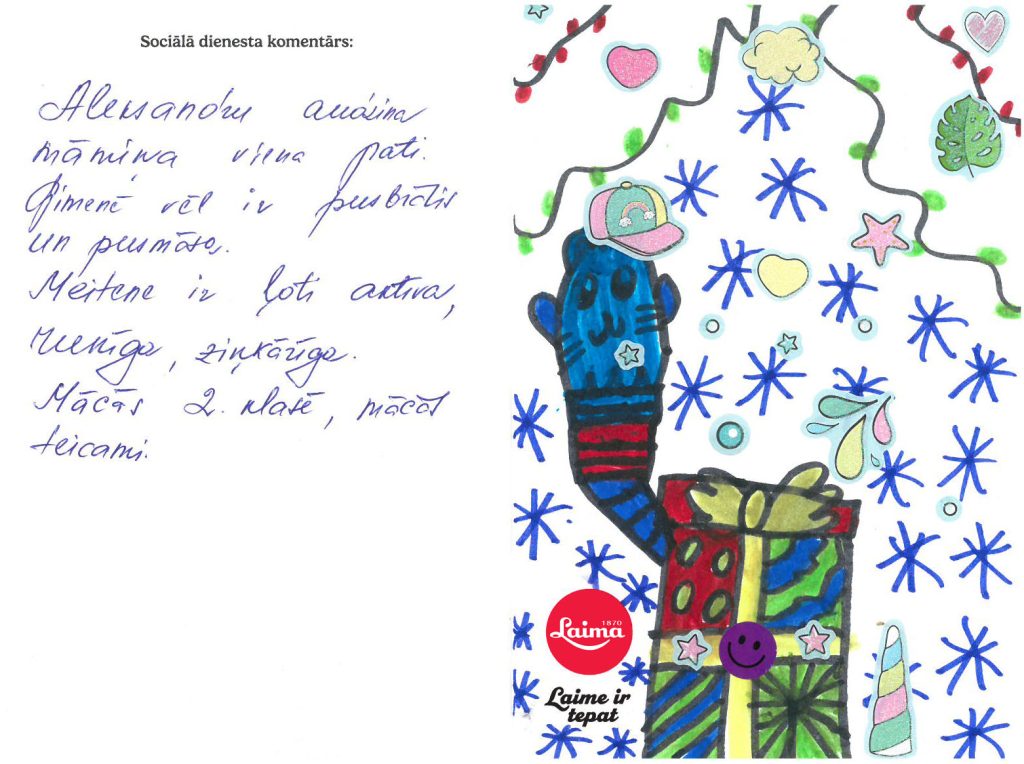 Sociālā dienesta komentārs:
Aleksandru audzina
māmiņa viena pati.
Ģimenē vēl ir pusbrālis
un pusmāsa.
Meitene ir ļoti aktīva,
zinkārīga.
Mācās 2. klasē, mācās
teicami.
1870
Laima
Laime ir
tepat